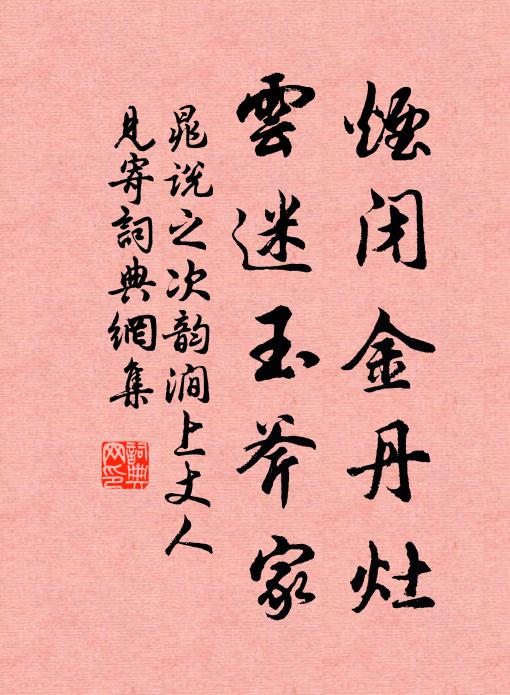 煙闭金丹灶
雲迷玉斧家
晁说之次韵涧上丈人
見寄詞典網集
詞典
网印